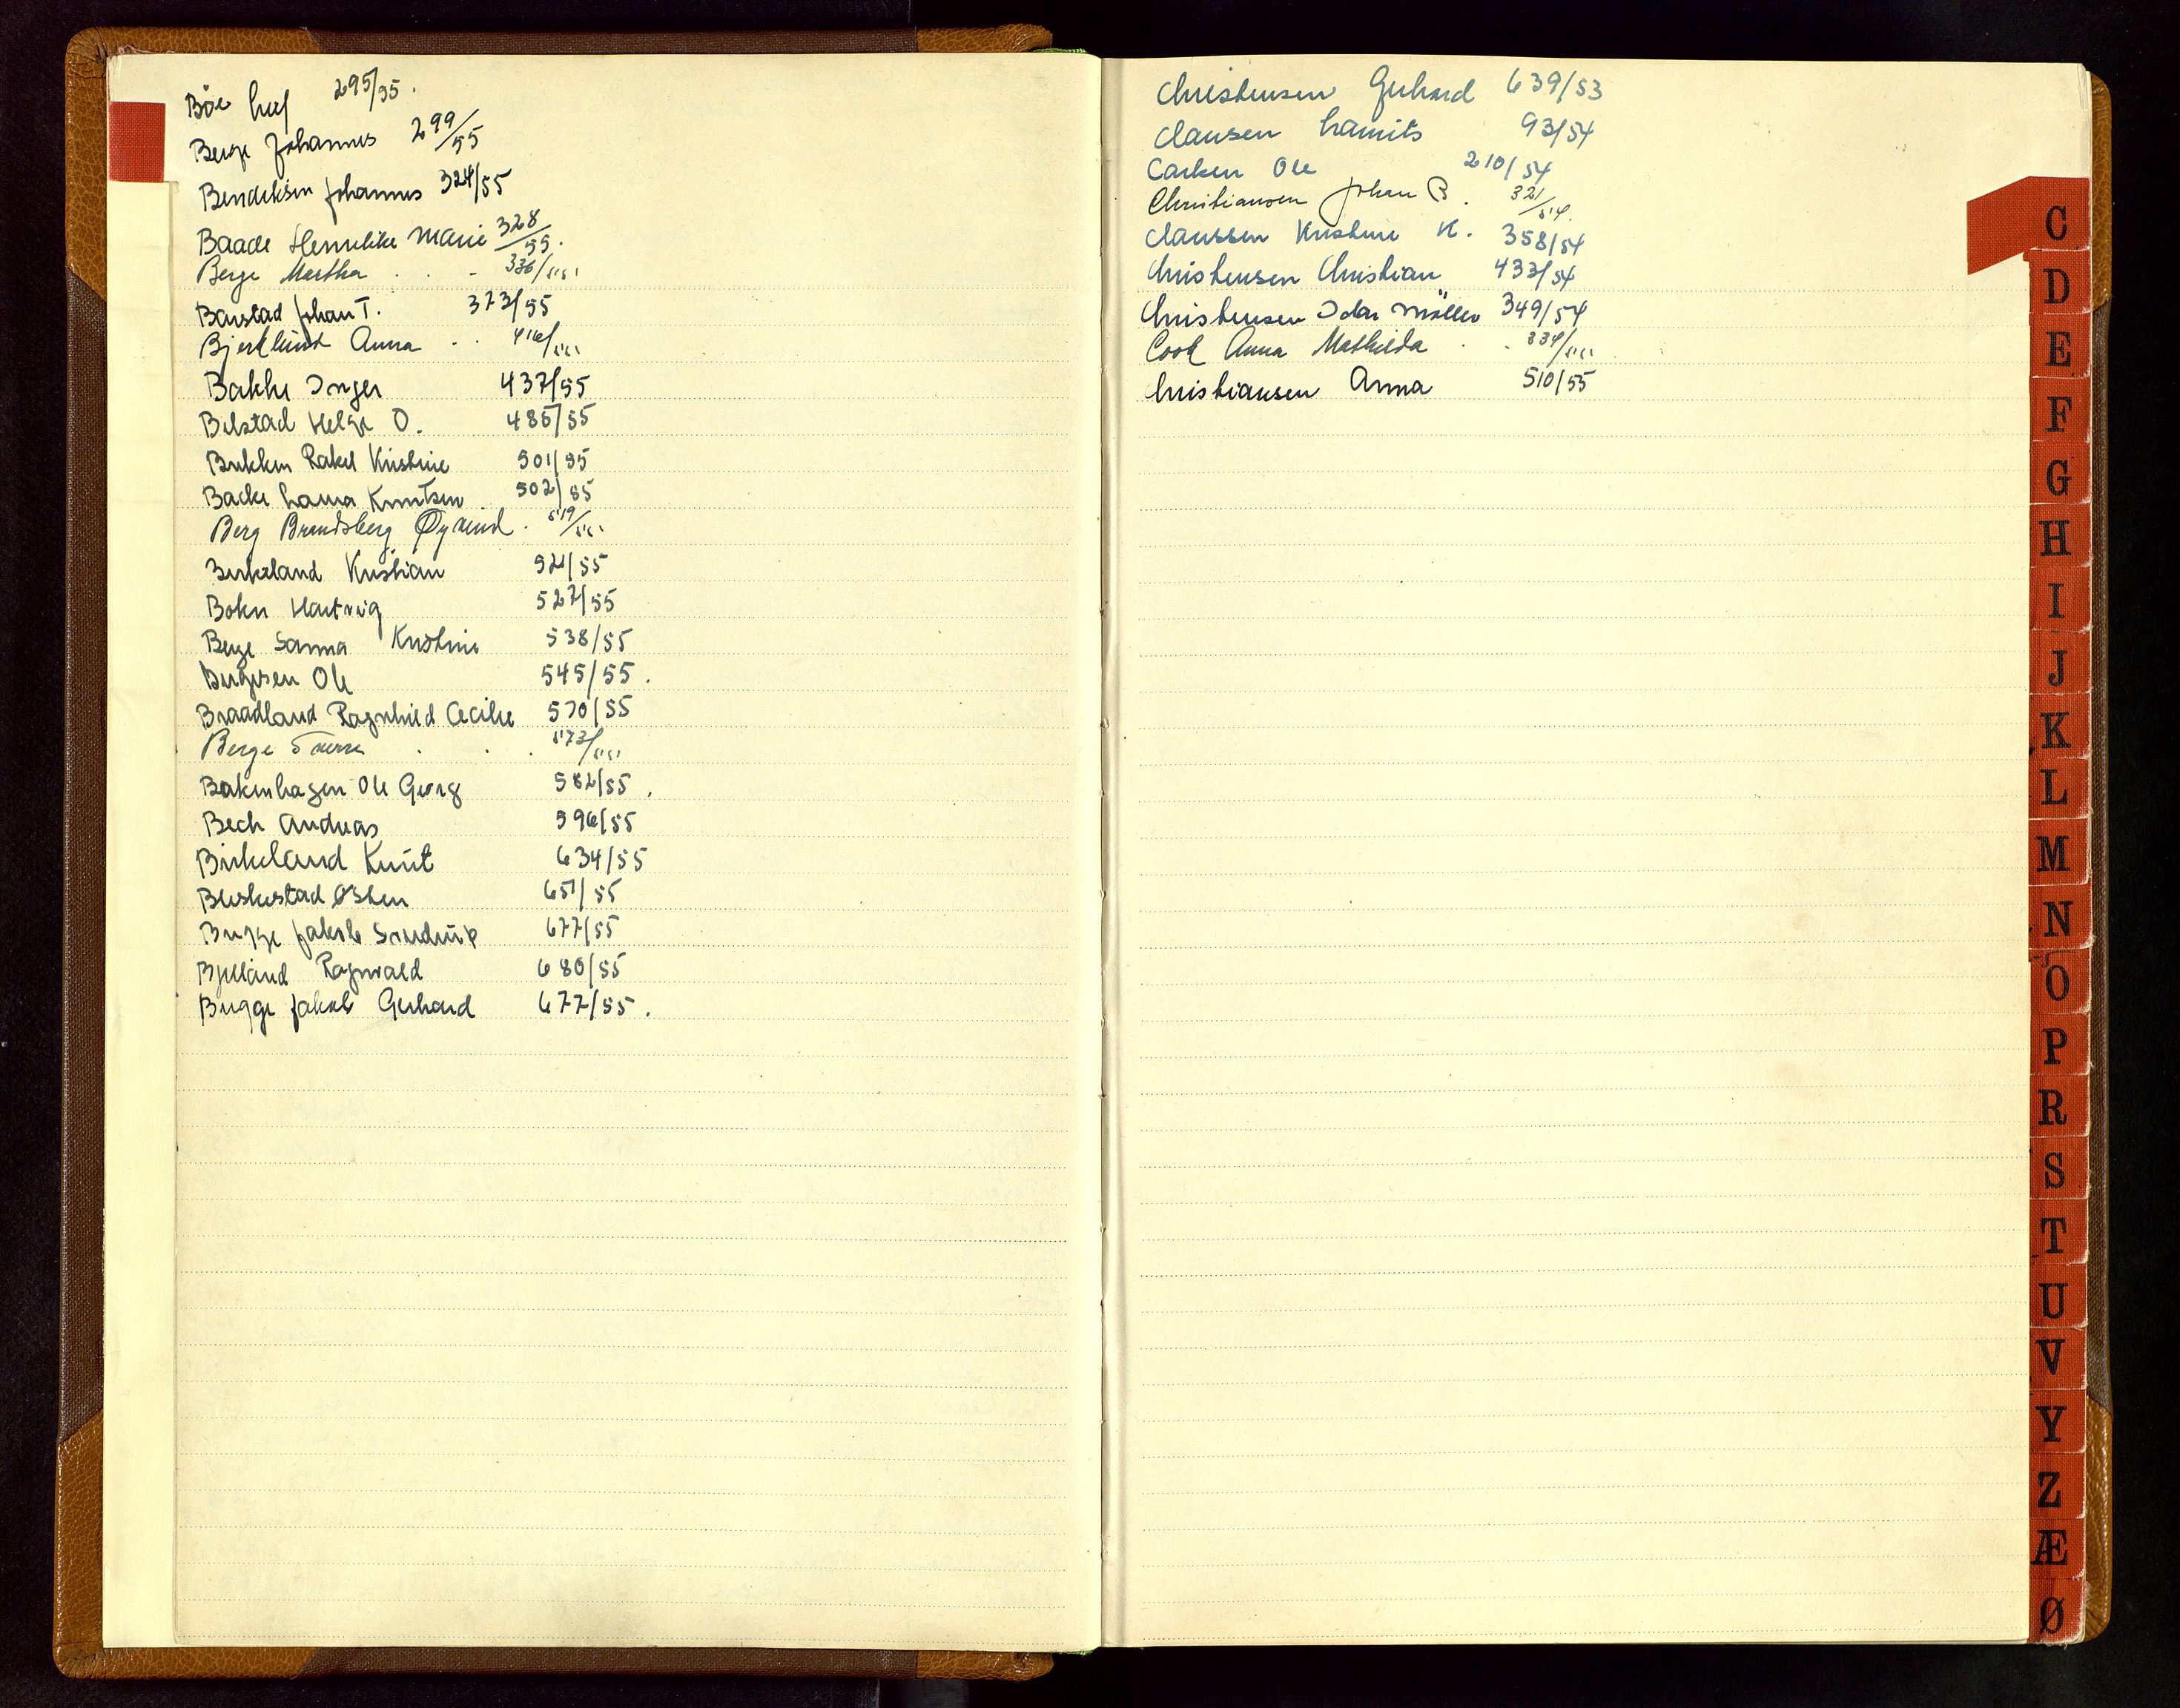 Böe 295/55.
Berge Johannes 299/55
Bendiksen Johannes 324/55
Baade Henrikke Marie 328/55.
Berge Martha . . - 336/55
Barstad Johan T. 373/55
Bjerklund Anna . . 416/55
Bakke Inger 437/55
Bilstad Helge O. 485/55
Bakken Rakel Kristine 501/55
Backe Laura Knutsen 502/55
Berg Brandsberg Øyvind . 519/55
Birkeland Kristian 521/55
Bokn Hartvig 527/55
Berge Sanna Kristine 538/55
Birgersen Ole 545/55.
Braadland Ragnhild Cecilie 570/55
Berge Sverre . . . 573/55
Bakenhagen Ole Georg 582/55.
Bech Andreas 596/55
Birkeland Knut 634/55
Bleskestad Osten 651/55
Bugge Jakob Sandrup 677/55
Bjelland Ragnvald 680/55
Bugge Jakob Gerhard 677/55.
Christensen Gerhard 639/53
Clausen Lauritz 93/54
Carlsen Ole 210/54
Christiansen Johan B. 321/54.
Claussen Kristine K. 358/54
Christensen Christian 433/54
Christensen Idar Möller 349/54
Cook Anna Mathilda . . 334/55
Christiansen Anna 510/55
C
D
E
F
G
H
I
J
K
L
M
N
O
P
R
S
T
U
V
Y
Z
Æ
Ø